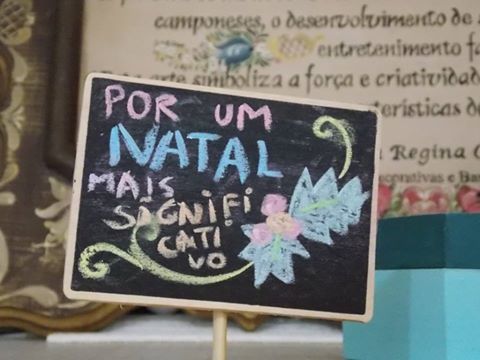 camponeses, o desenvolvimento de
entretenimento fa
arte simboliza a força e criatividad
terísticas de
Regina
POR UM
NATAL
MAIS
SIGNIFI
CATI
VO